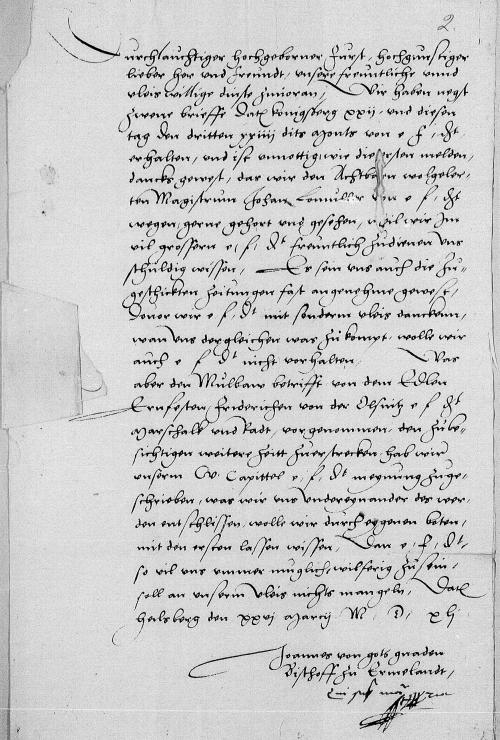 2.
Durchlauchtiger hochgeborner Furst, hochgunstiger
lieber her und freundt, unsere freuntliche unnd
vleis willige dinste zuvoran, Wir haben negst
zwene brieffe Dat. konigsberg xxij, und diesen
tag den dritten xxiiij dits Monts von e f. dt.
erhalten, und ist unnottig wie die ersten melden,
dancks gewest, das wir den Achtbaren wolgeler-
ten Magistrum Johan Lomuller von e f. dt
wegen, gerne gehort und gesehen, weil wir Im
vil grossern e. f. dt freuntlich zudienen uns
schuldig wissen, Es sein uns auch die Zu-
geschickten zeitungen fast angenehme gewest,
Donor wir e f. dt mit sonderm vleis dancken,
wan uns dergleichen was zukompt, wolle wir
auch e f dt nicht vorhalten, Was
aber den Mullaur betrifft von dem Edlen
Ernfesten, Friderichen von der Olsnitz e f dt
Marschalk und Radt, vorgenommen, den zube-
sichtigen weitere zeitt zuerstrecken, hab wir
unserm W. Capittel e. f. dt meynung zuge-
schrieben, was wir uns undereynander des wer-
den entschlissen, wolle wir durch eygenen boten,
mit den ersten lassen wissen, Dan e. f. dt.
so vil uns ummer muglich, wilferig zu sein,
soll an unserm vleis nichts mangeln, Dat.
heilsberg den xxvj Marcij M. D. xlj
Joannes von gots gnaden
Bischoff zu Ermelandt,